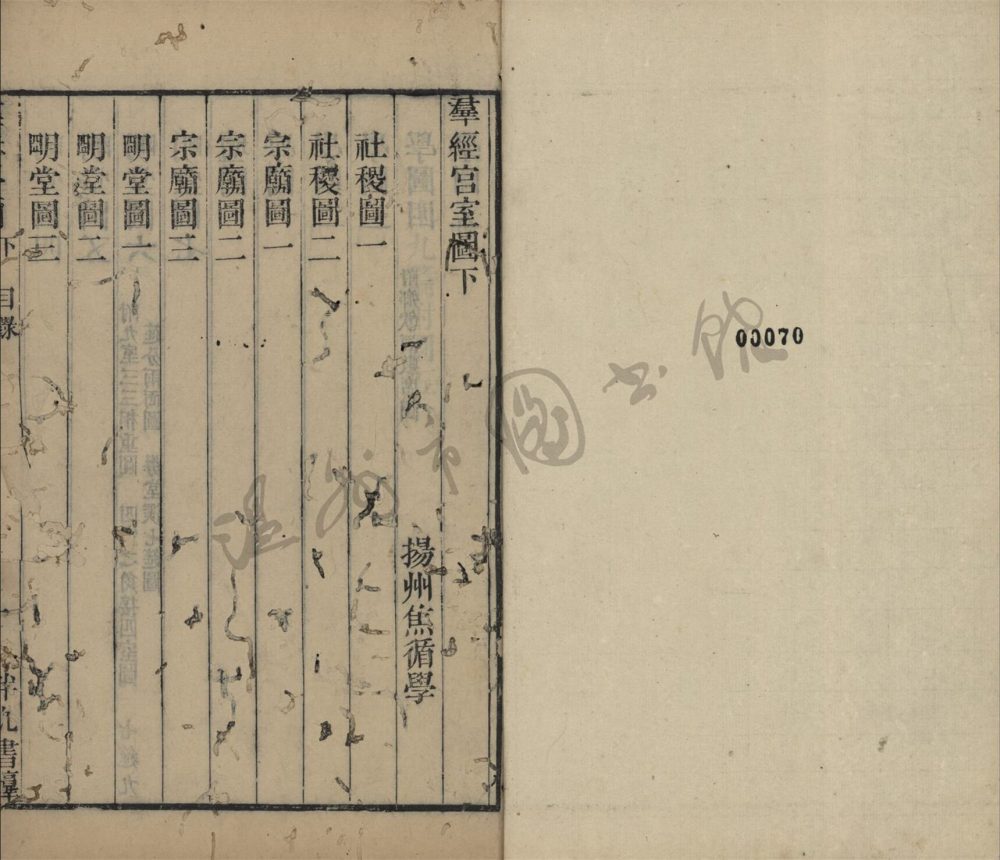 羣經宮室圖下
揚州焦循學
社稷圖一
社稷圖二
宗廟圖一
宗廟圖二
宗廟圖三
明堂圖一
明堂圖二
明堂圖三
下
目錄
半九書塾
00070
溫州市圖书館